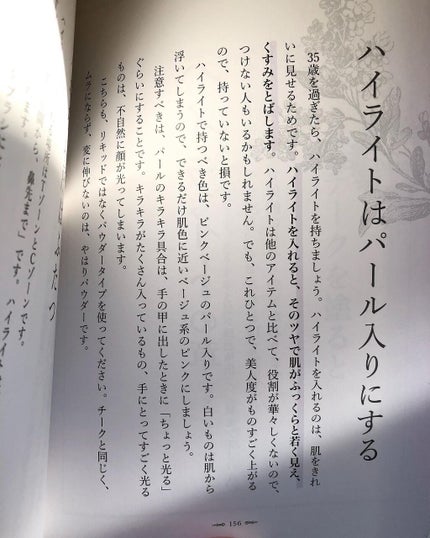 ハイライトはパール入りにする
35歳を過ぎたら、ハイライトを持ちましょう。ハイライトを入れるのは、肌をきれ
いに見せるためです。ハイライトを入れると、そのツヤで肌がふっくらと若く見え、
くすみをとばします。ハイライトは他のアイテムと比べて、役割が華々しくないので、
つけない人もいるかもしれません。でも、これひとつで、美人度がものすごく上がる
ので、持っていないと損です。
ハイライトで持つべき色は、ピンクベージュのパール入りです。白いものは肌から
浮いてしまうので、できるだけ肌色に近いベージュ系のピンクにしましょう。
注意すべきは、パールのキラキラ具合は、手の甲に出したときに「ちょっと光る」
ぐらいにすることです。キラキラがたくさん入っているもの、手にとってすごく光る
ものは、不自然に顔が光ってしまいます。
こちらも、リキッドではなくパウダータイプを使ってください。チークと同じく、
ムラにならず、変に伸びないのは、やはりパウダーです。
156
ふたつ
はTゾーンとCゾーンです。
鼻先まで」です。ハイライ